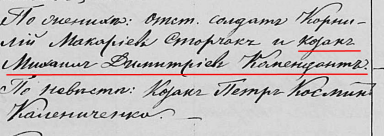 По женихѣ: отст. солдатъ Корни-
лій Макаріевъ Сторчакъ и козакъ
Михаилъ Димитріевъ Капендюхъ.
По невѣстѣ: Козакъ Петръ Космин
Калениченко.